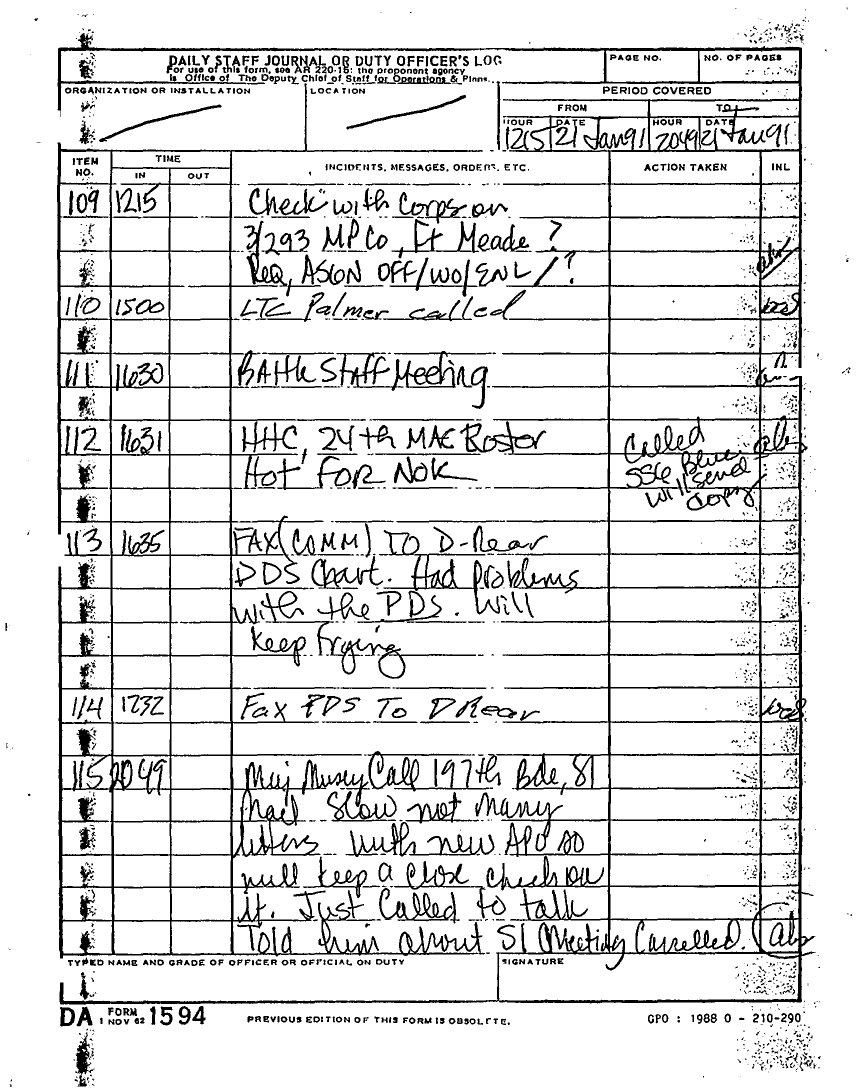 DAILY STAFF JOURNAL OR DUTY OFFICER'S LOG
For use of this form, see AR 220-15; the proponent agency
is Office of The Deputy Chief of Staff for Operations & Plans.
PAGE NO.
NO. OF PAGES
ORGANIZATION OR INSTALLATION
LOCATION
PERIOD COVERED
FROM
TO
HOUR DATE HOUR DATE
1215 21 Jan 91 2049 21 Jan 91
ITEM NO.
TIME
IN OUT
INCIDENTS, MESSAGES, ORDERS, ETC.
ACTION TAKEN
INL
109 1215 Check with Corps on
3/293 MP Co, Ft Meade ?
Req, ASGN OFF/WO/ENL/?
110 1500 LTC Palmer called
111 1630 BAttle Staff Meeting
112 1631 HHC, 24th MAC Roster
Hot FOR NOK
Called
556 Blue
will send
copy
113 1635 FAX (COMM) TO D-Rear
PDS Chart. Had problems
with the PDS. Will
keep trying
114 1732 Fax PDS To DRear
115 2049 Maj Call 197th Bde, S1
Mail Slow not many
letters with new APO so
will keep a close check on
it. Just Called to talk
Told him about S1 Meeting Cancelled.
TYPED NAME AND GRADE OF OFFICER OR OFFICIAL ON DUTY
SIGNATURE
DA FORM 1 NOV 62 1594
PREVIOUS EDITION OF THIS FORM IS OBSOLETE.
GPO : 1988 O - 210-290